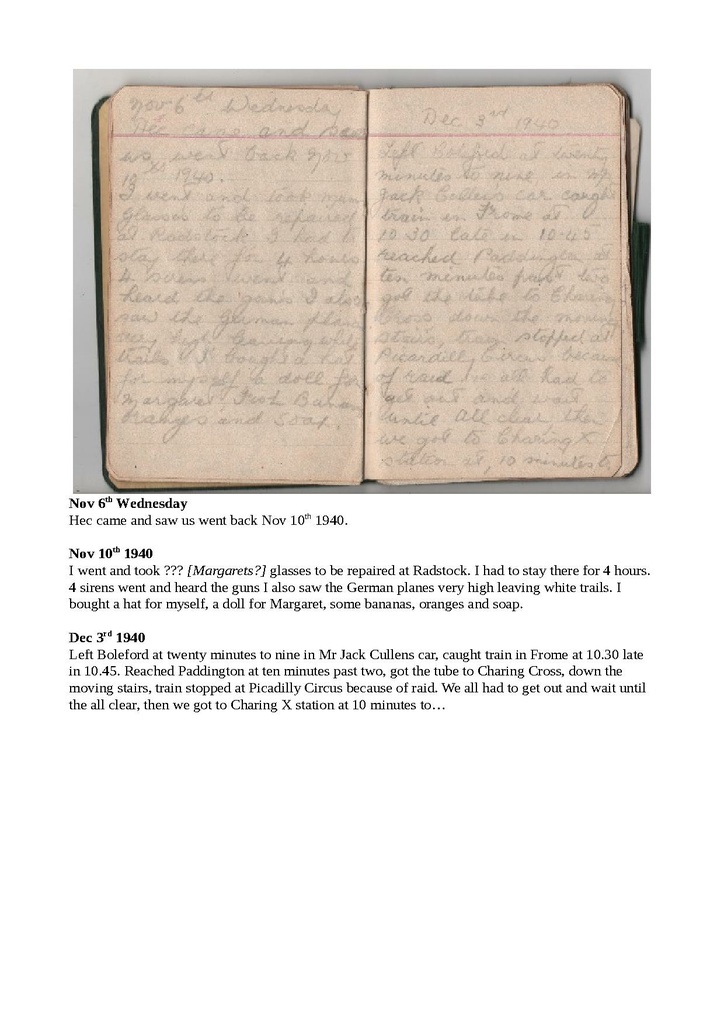 Nov 6th Wednesday
Hec came and saw
us went back Nov
1940.
I went and took
glasses to be repaired
at Radstock I had to
stay there for 4 hours
4 sirens went and
heard the guns I also
saw the German planes
very high leaving white
trails I bought a hat
for myself a doll for
Margaret Banan
Oranges and Soap.
Dec 3rd 1940
Left Boleford at twenty
minutes to nine in Mr
Jack car caught
train in Frome at
10.30 late in 10.45
reached Paddington at
ten minutes past two
got the tube to Charing
Cross down the moving
stairs, train stopped at
Picardilly Circus because
of raid we all had to
get out and wait
until all clear then
we got to Charing X
station at, 10 minutes to
Nov 6th Wednesday
Hec came and saw us went back Nov 10th 1940.
Nov 10th 1940
I went and took ??? [Margarets?] glasses to be repaired at Radstock. I had to stay there for 4 hours.
4 sirens went and heard the guns I also saw the German planes very high leaving white trails. I
bought a hat for myself, a doll for Margaret, some bananas, oranges and soap.
Dec 3rd 1940
Left Boleford at twenty minutes to nine in Mr Jack Cullens car, caught train in Frome at 10.30 late
in 10.45. Reached Paddington at ten minutes past two, got the tube to Charing Cross, down the
moving stairs, train stopped at Picadilly Circus because of raid. We all had to get out and wait until
the all clear, then we got to Charing X station at 10 minutes to…